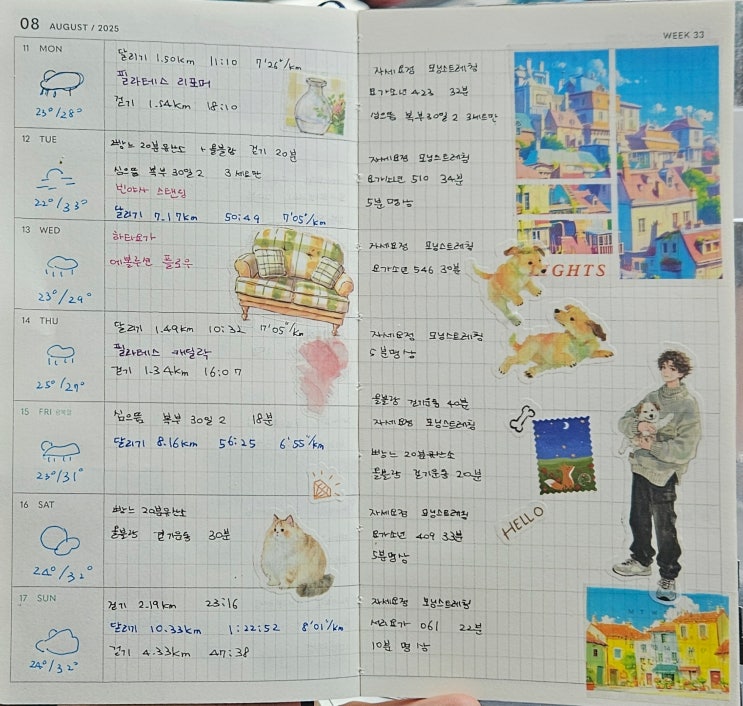 08 AUGUST / 2025
11 MON
달리기 1.50km 11:10 7'26"/km
필라테스 리포머
걷기 1.54km 18:10
23°/28°
12 TUE
빵느 20분유산소 +올블랑 걷기 20분
심으뜸 복부 30일 2 3세트만
빈야사 스탠딩
달리기 7.17km 50:49 7'05"/km
22°/33°
13 WED
하타요가
에볼루션 플로우
23°/29°
14 THU
달리기 1.49km 10:32 7'05"/km
필라테스 캐딜락
걷기 1.34km 16:07
25°/29°
15 FRI 광복절
심으뜸 복부 30일 2 18분
달리기 8.16km 56:25 6'55"/km
23°/31°
16 SAT
빵느 20분유산소
올블랑 걷기운동 30분
24°/32°
17 SUN
걷기 2.19km 23:16
달리기 10.33km 1:22:52 8'01"/km
걷기 4.33km 47:38
24°/32°
WEEK 33
자세요정 모닝스트레칭
요가소년 423 32분
심으뜸 복부30일 2 3세트만
자세요정 모닝스트레칭
요가소년 510 34분
5분명상
자세요정 모닝스트레칭
요가소년 546 30분
GHTS
자세요정 모닝스트레칭
5분명상
올블랑 걷기운동 40분
자세요정 모닝스트레칭
빵느 20분유산소
올블랑 걷기운동 20분
HELLO
자세요정 모닝스트레칭
요가소년 409 33분
5분명상
자세요정 모닝스트레칭
서리요가 061 22분
10분 명상